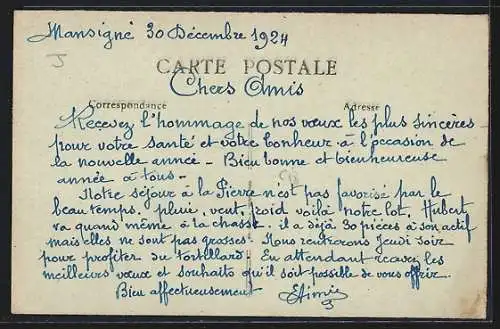 Mansigné 30 Décembre 1924
J
CARTE POSTALE
Chers Amis
Correspondance
Adresse
Recevez l'hommage de nos vœux les plus sincères
pour votre santé et votre bonheur à l'occasion de
la nouvelle année - Bien bonne et bienheureuse
année à tous -
Notre séjour à la Pierre n'est pas favorisé par le
beau temps. pluie, vent, froid voilà notre lot. Hubert
va quand même à la chasse. il a déjà 30 pièces à son actif
mais elles ne sont pas grosses. Nous rentrerons Jeudi soir
pour profiter du tortillard. En attendant recevez les
meilleurs vœux et souhaits qu'il soit possible de vous offrir.
Bien affectueusement
Aimée